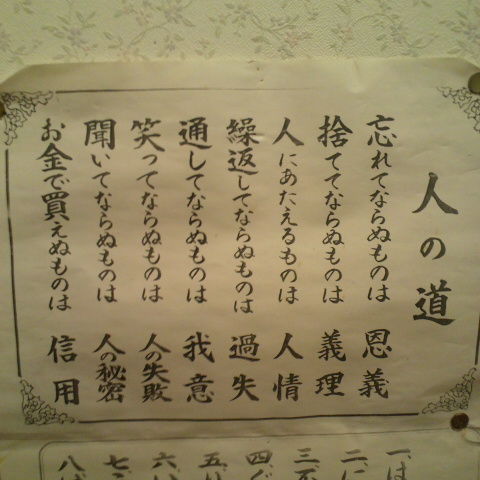 人の道
忘れてならぬものは 恩義
捨ててならぬものは 義理
人にあたえるものは 人情
繰返してならぬものは 過失
通してならぬものは 我意
笑ってならぬものは 人の失敗
聞いてならぬものは 人の秘密
お金で買えぬものは 信用
一、は
二、に
三、不
四、ぐ
五、
六、い
七、
八、ば